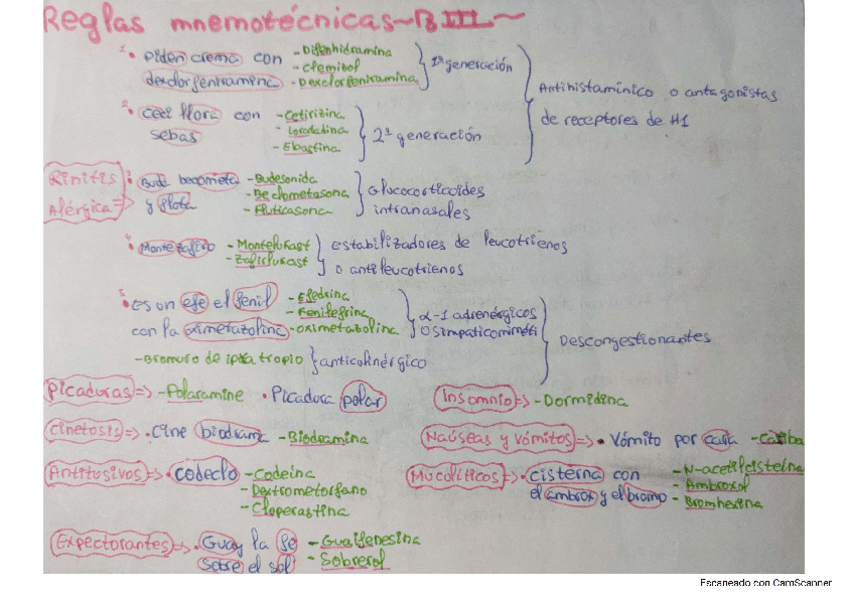 Reglas mnemotécnicas ~ B III ~
1. • Piden crema con - Difenhidramina
dexclorfeniramina - Clemitol - Dexclorfeniramina } 1ª generación
2. • Ceci llora con - Cetirizina
sebas - Loratadina - Ebastina } 2ª generación
Antihistamínico o antagonistas
de receptores de H1
Rinitis
Alérgica =>
3. • Bude becometa - Budesonida
y flota - Beclometasona - Fluticasona
} Glucocorticoides
intranasales
4. • Montezafiro - Montelukast
- Zafirlukast
} estabilizadores de leucotrienos
o antileucotrienos
5. • es un efe el fenil - Efedrina
- Fenilefrina
con la oximetazolina - oximetazolina
} α-1 adrenérgicos
o simpaticomiméti
- Bromuro de ipratropio } anticolinérgico
Descongestionantes
Picaduras => - Polaramine • Picadura polar
Insomnio => - Dormidina
Cinetosis => • Cine biodrama - Biodramina
Naúseas y vómitos => • Vómito por cariba - Cariban
Antitusivos => • codeclo - Codeína
- Dextrometorfano
- Cloperastina
Mucolíticos => • cisterna con - N-acetilcisteína
el ambrox y el bromo - Ambroxol
- Bromhexina
Expectorantes => • Guay la fe - Guaifenesina
sobre el sol - Sobrerol
Escaneado con CamScanner